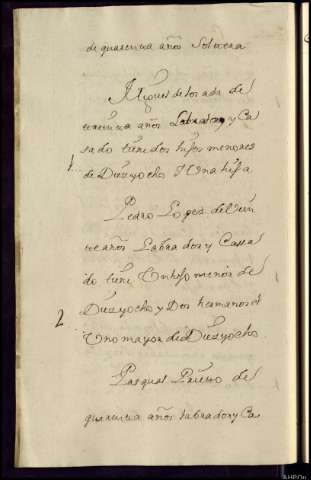 de quarenta años Soltera
Miguel de losada de
quarenta años Labrador y Ca
1 sado tiene dos hijos menores
de Diezyocho Y Una hija
Pedro Lopez de Vein
te años Labrador y Cassa
do tiene Un hijo menor de
2 Diezyocho y Dos hermanos el
Uno mayor de Diezyocho
Pasqual Prieto de
quarenta años labrador y Ca
AHPOu